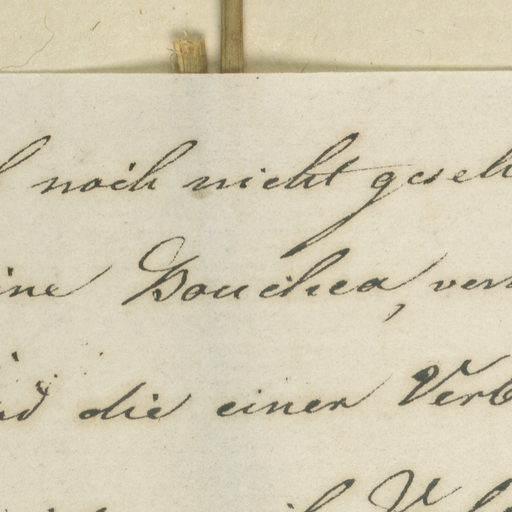 noch nicht geseh
ine Bouchea, ver
die einer Verb